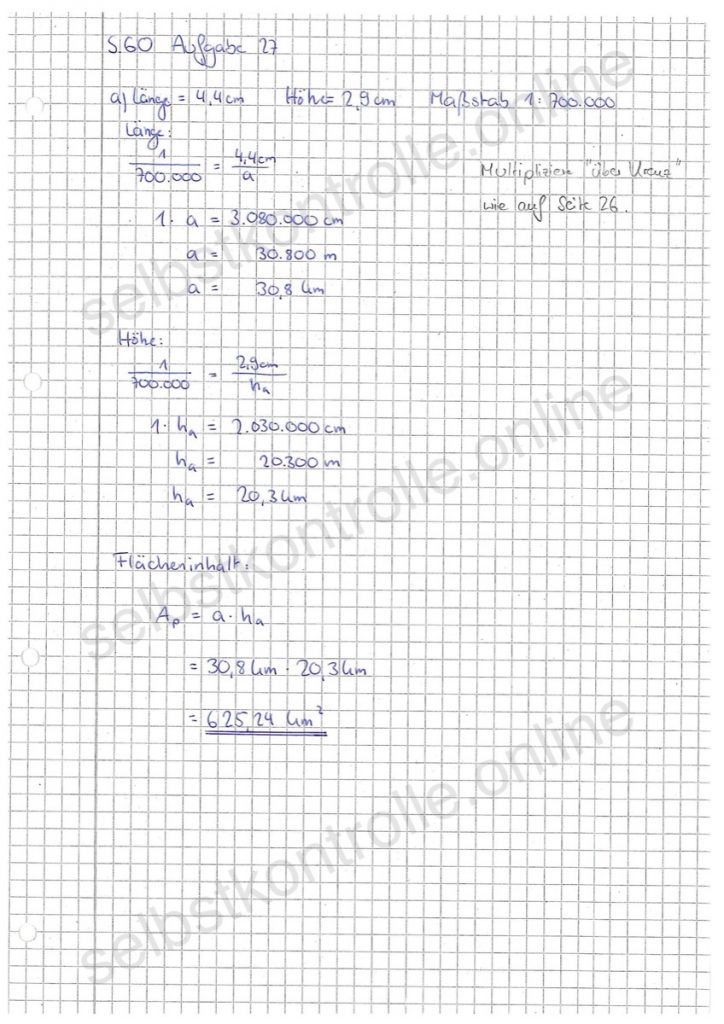 S.60 Aufgabe 27
a) Länge = 4,4cm Höhe = 2,9cm Maßstab 1:700.000
Länge:
1/700.000 = 4,4cm/a
Multipliziere "über Kreuz"
wie auf Seite 26.
1 · a = 3.080.000 cm
a = 30.800 m
a = 30,8 km
Höhe:
1/700.000 = 2,9cm/hₐ
1 · hₐ = 2.030.000 cm
hₐ = 20.300 m
hₐ = 20,3 km
Flächeninhalt:
Aₚ = a · hₐ
= 30,8 km · 20,3 km
= 625,24 km²
selbstkontrolle.online
selbstkontrolle.online
selbstkontrolle.online